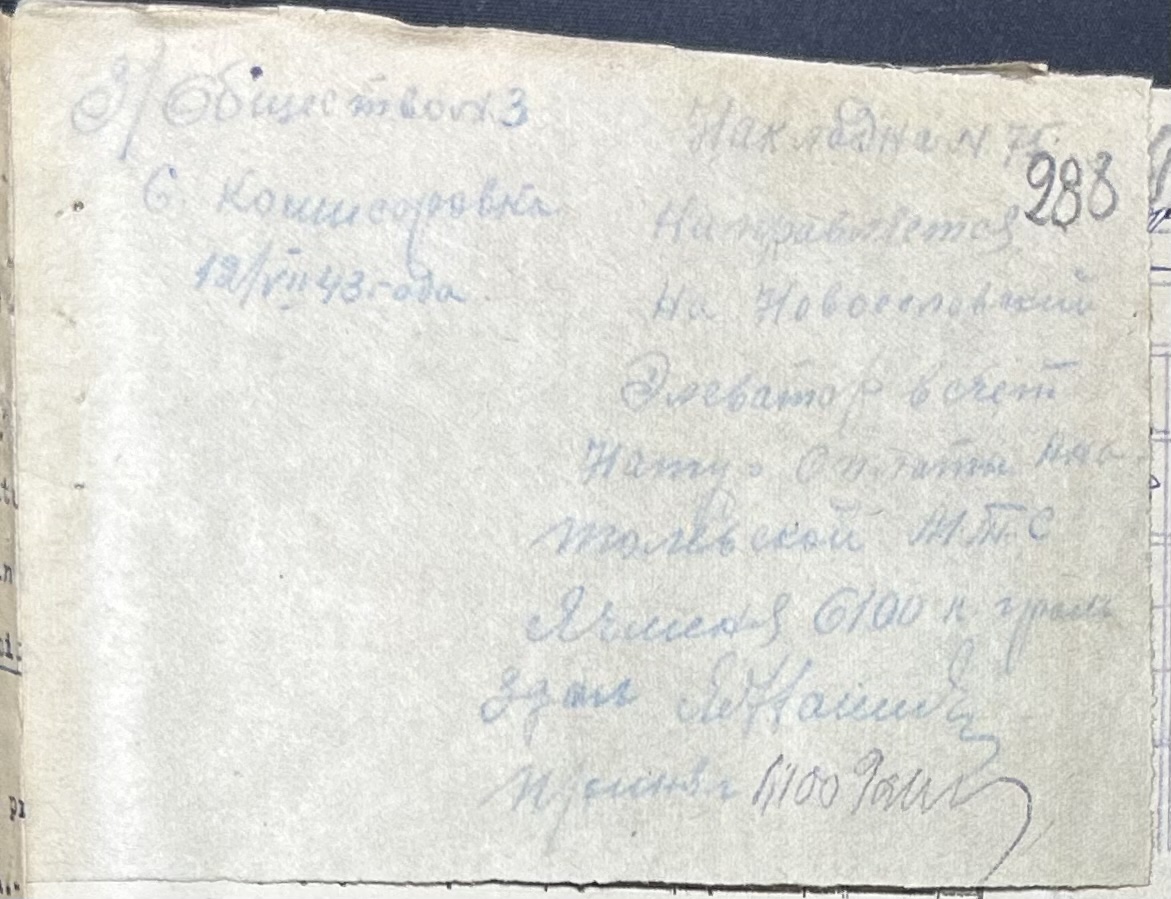 З/Общество N 3
С. Комисаровка
12/VIII 43 года
Накладна N 75.
288
Направляется
На Новоселовский
Элеватор в счет
Нату-Оплаты Ана-
тольевской М.Т.С
Ячменя 6100 к. грам
Здал
принял 6100